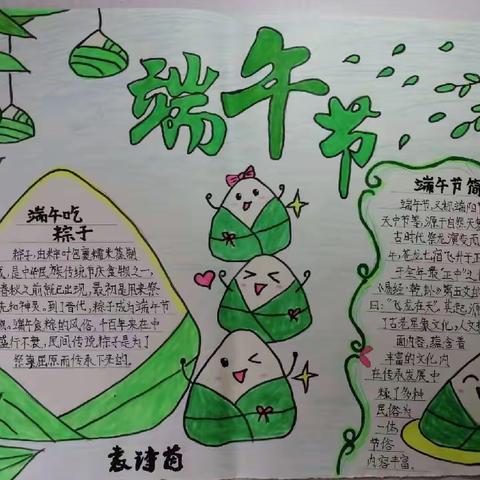 端午节
端午吃
粽子
粽子,由粽叶包裹糯米蒸制
成,是中华民族传统节庆食物之一,
春秋之前就已出现,最初是用来祭
祖先和神灵。到了晋代,粽子成为端午节
端午食粽的风俗,千百年来在中
盛行不衰,民间传统粽子是为了
祭奠屈原而传承下来的。
袁诗茵
端午节简
端午节,又称端阳节
天中节等,源于自然天
古时代祭龙演变而
午,苍龙七宿飞升于正
于全年最"正中"之
《易经·乾卦》第五爻的
曰:"飞龙在天"。
了古老星象文化,人文
面内容,蕴含着
丰富的文化内
在传承发展中
糅了多种
民俗为
一体
节俗
内容丰富。